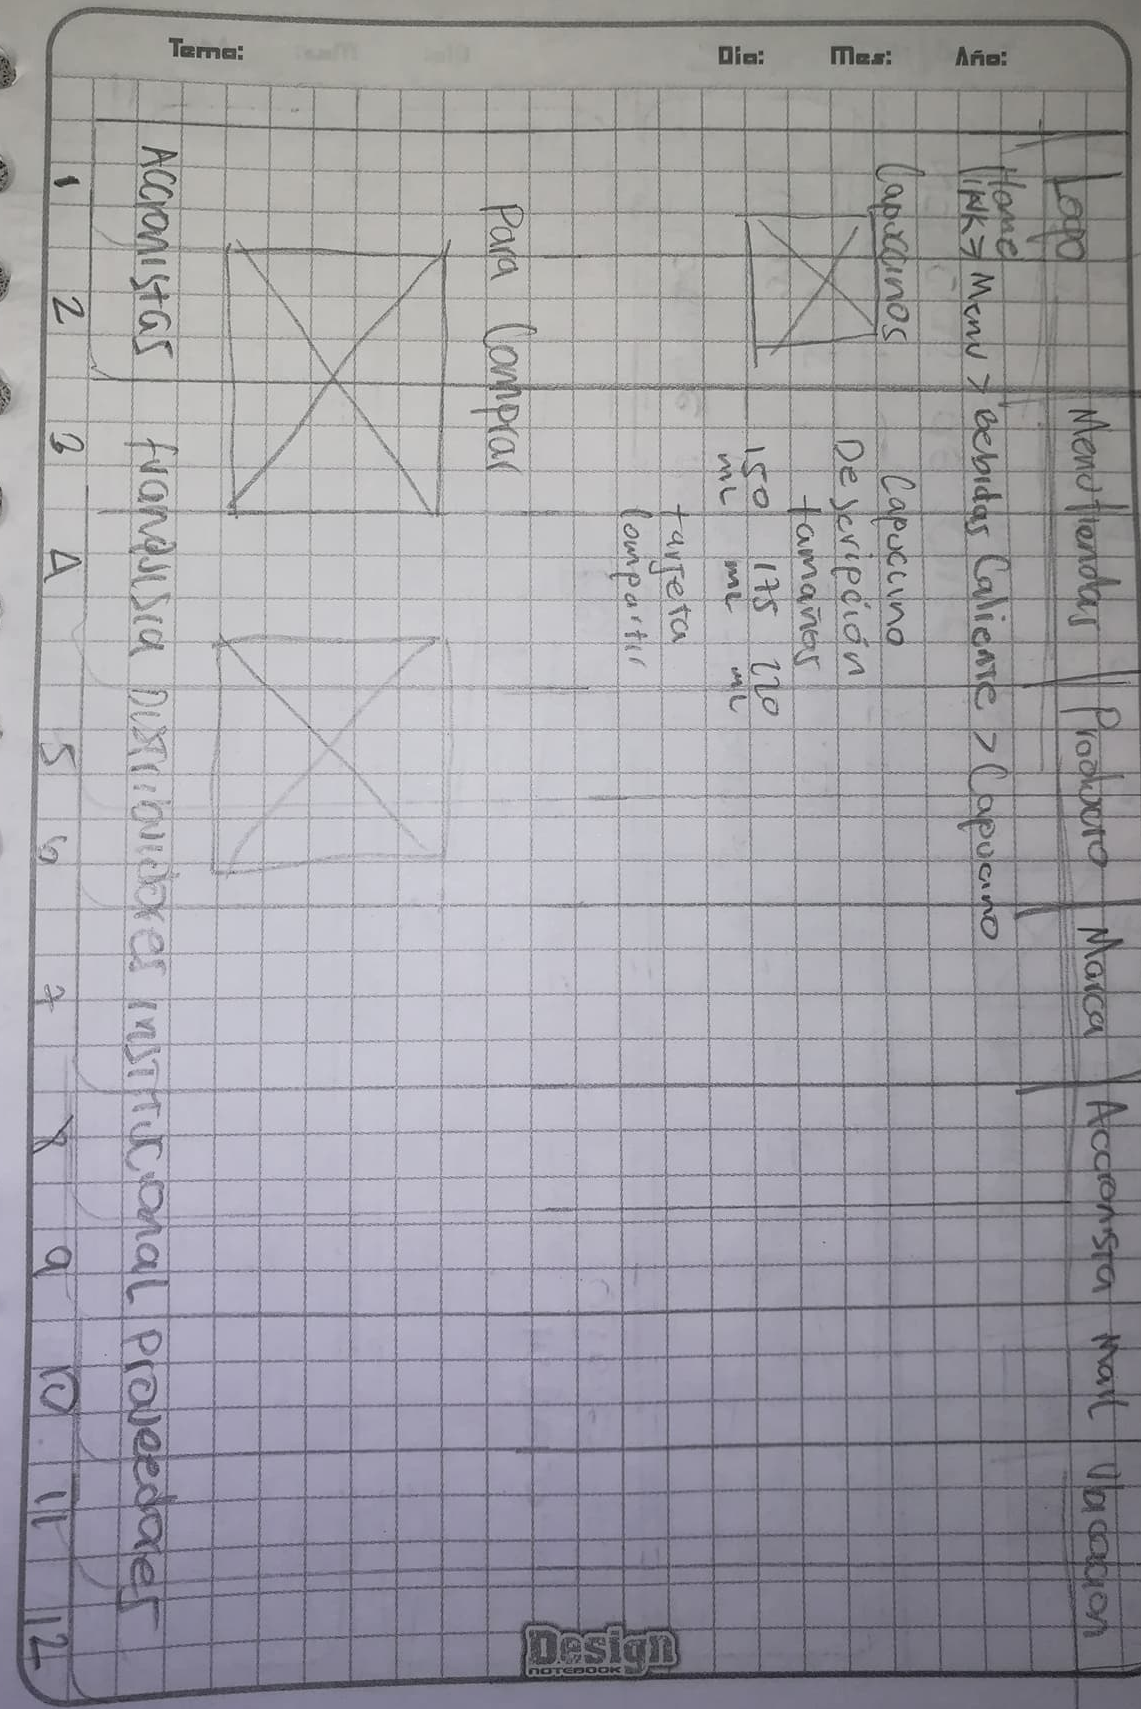 Tema:
Dia: Mes: Año:
Logo Menu tiendas Producto Marca Accionista Mail Ubicacion
Home
link > Menu > Bebidas Caliente > Capuccino
Capuccinos
Capuccino
Descripción
tamaños
150 175 220
ml ml ml
tarjeta
Compartir
Para Comprar
Accionistas franquisia Distribuidores institucional proveedores
1 2 3 4 5 6 7 8 9 10 11 12
Design
NOTEBOOK